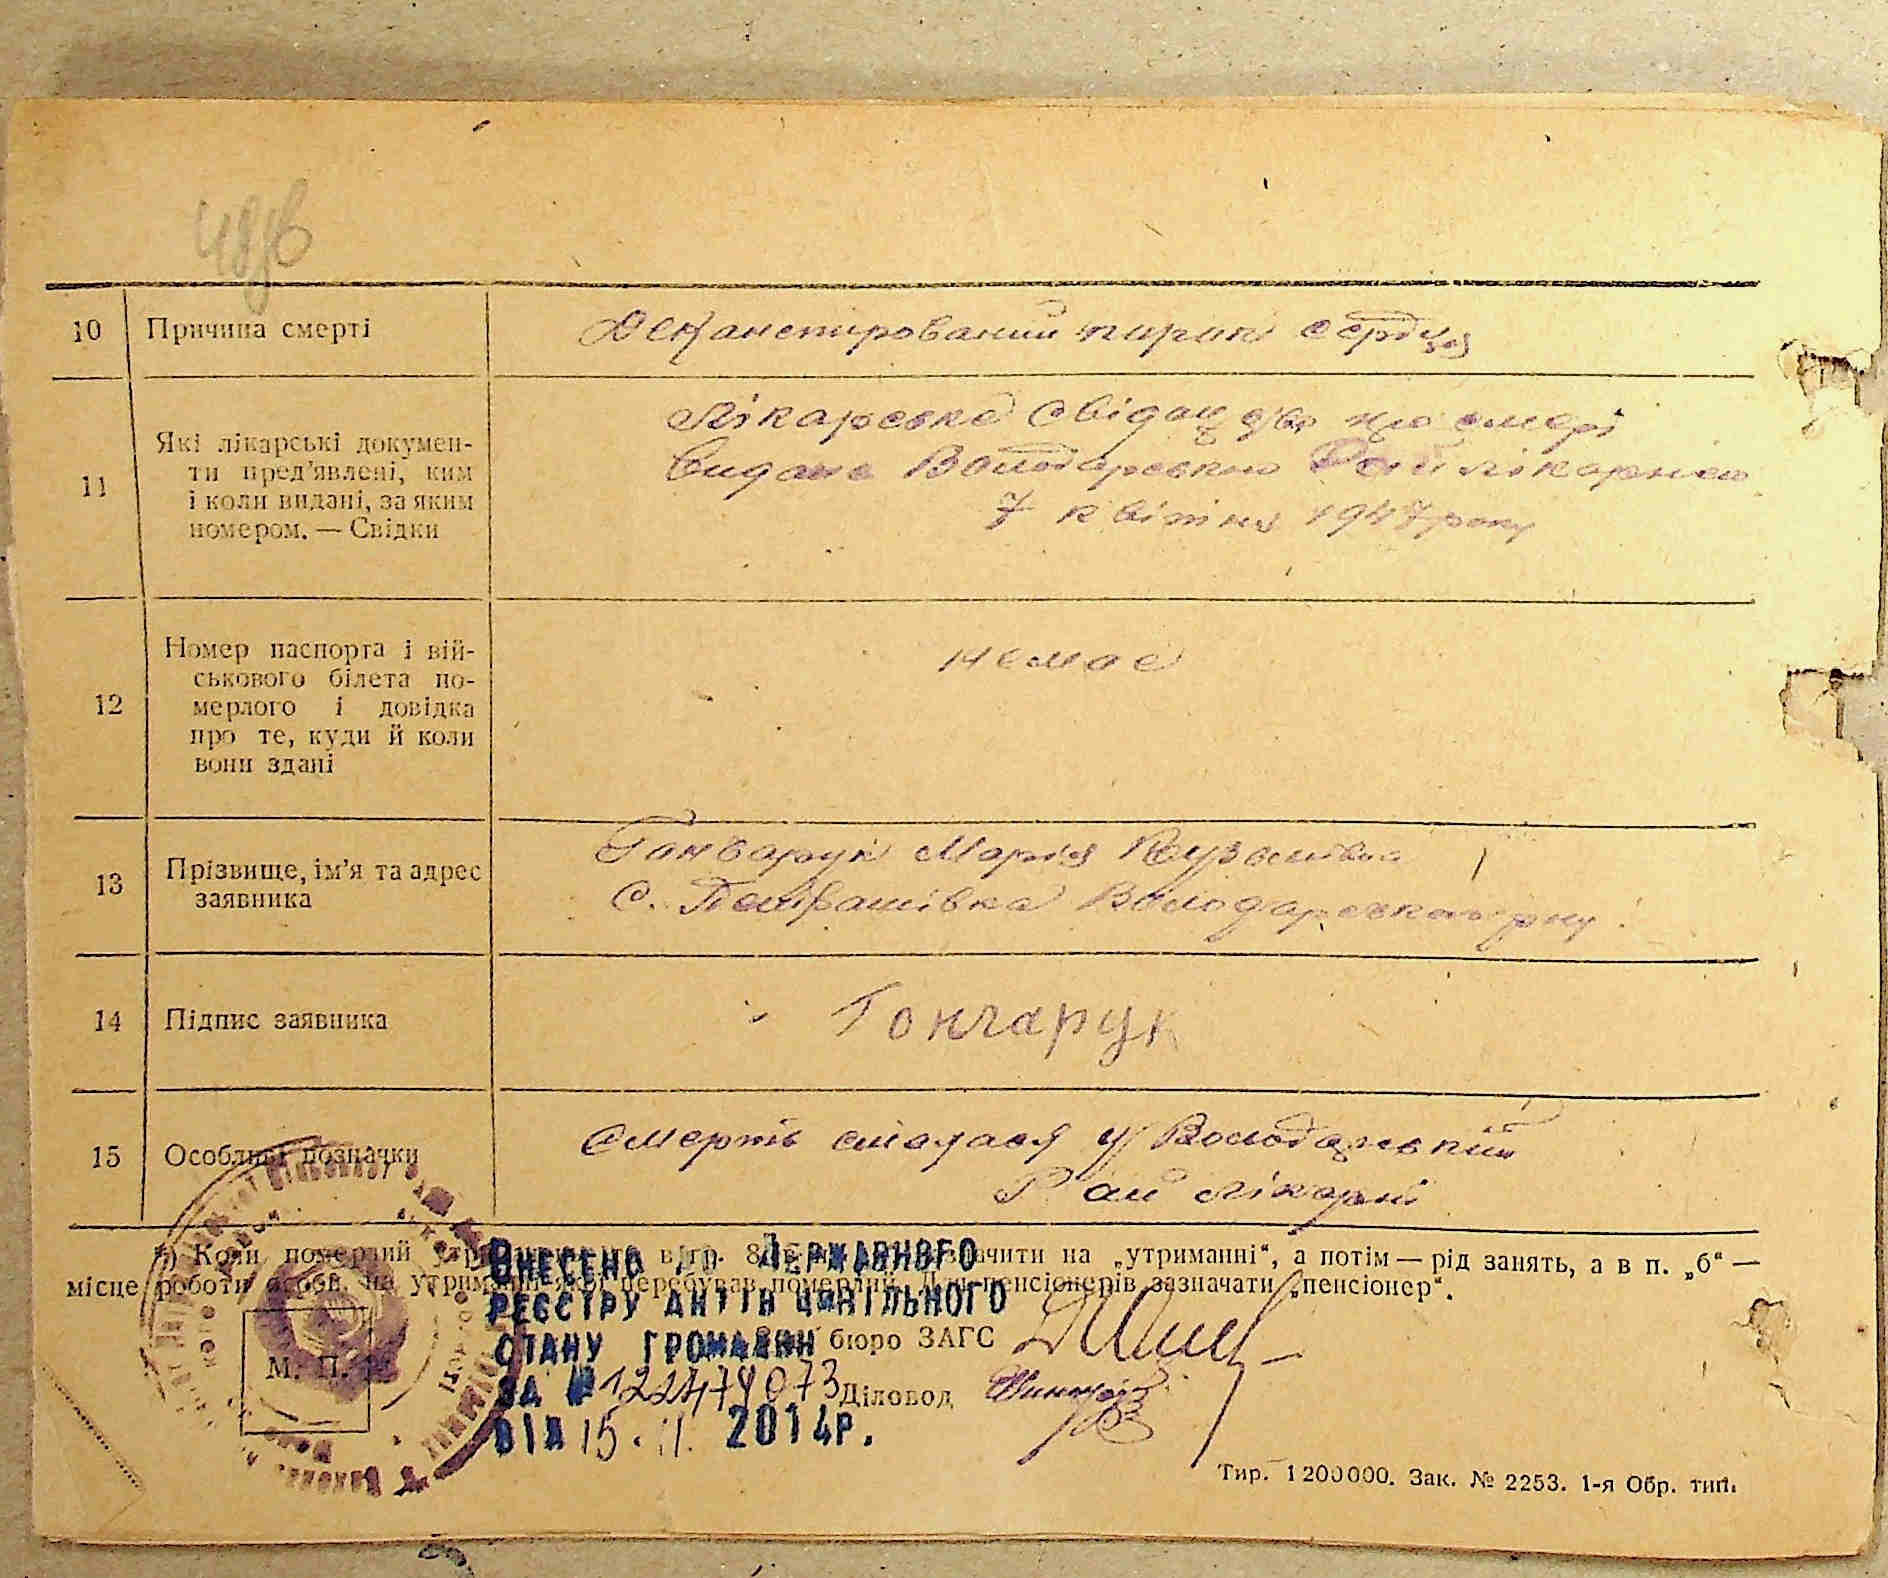 10 Причина смерті
сердця
11 Які лікарські докумен-
ти пред’явлені, ким
і коли видані, за яким
номером. — Свідки
Лікарське свідоцтво про смерт
Видане Володарською Рай лікарнею
7 квітня 1947 року
12 Номер паспорта і вій-
ськового білета по-
мерлого і довідка
про те, куди й коли
вони здані
немає
13 Прізвище, ім’я та адрес
заявника
Гончарук Марія Кузьмівна
С. Петрашівка Володарського р-ну
14 Підпис заявника
Гончарук
15 Особливі позначки
Смерть сталася у Володарській
Рай лікарні
*) Коли померлий в гр. 8 на „утриманні“, а потім — рід занять, а в п. „б“ —
місце роботи особи, на утриманні якої перебував померлий. Для пенсіонерів зазначати „пенсіонер“.
ВНЕСЕНО ДО ДЕРЖАВНОГО
РЕЄСТРУ АКТІВ ЦИВІЛЬНОГО
СТАНУ ГРОМАДЯН
бюро ЗАГС
М. П.
ЗА №
Діловод
ВІД 15.11. 2014Р.
Тир. 1200000. Зак. № 2253. 1-я Обр. тип.